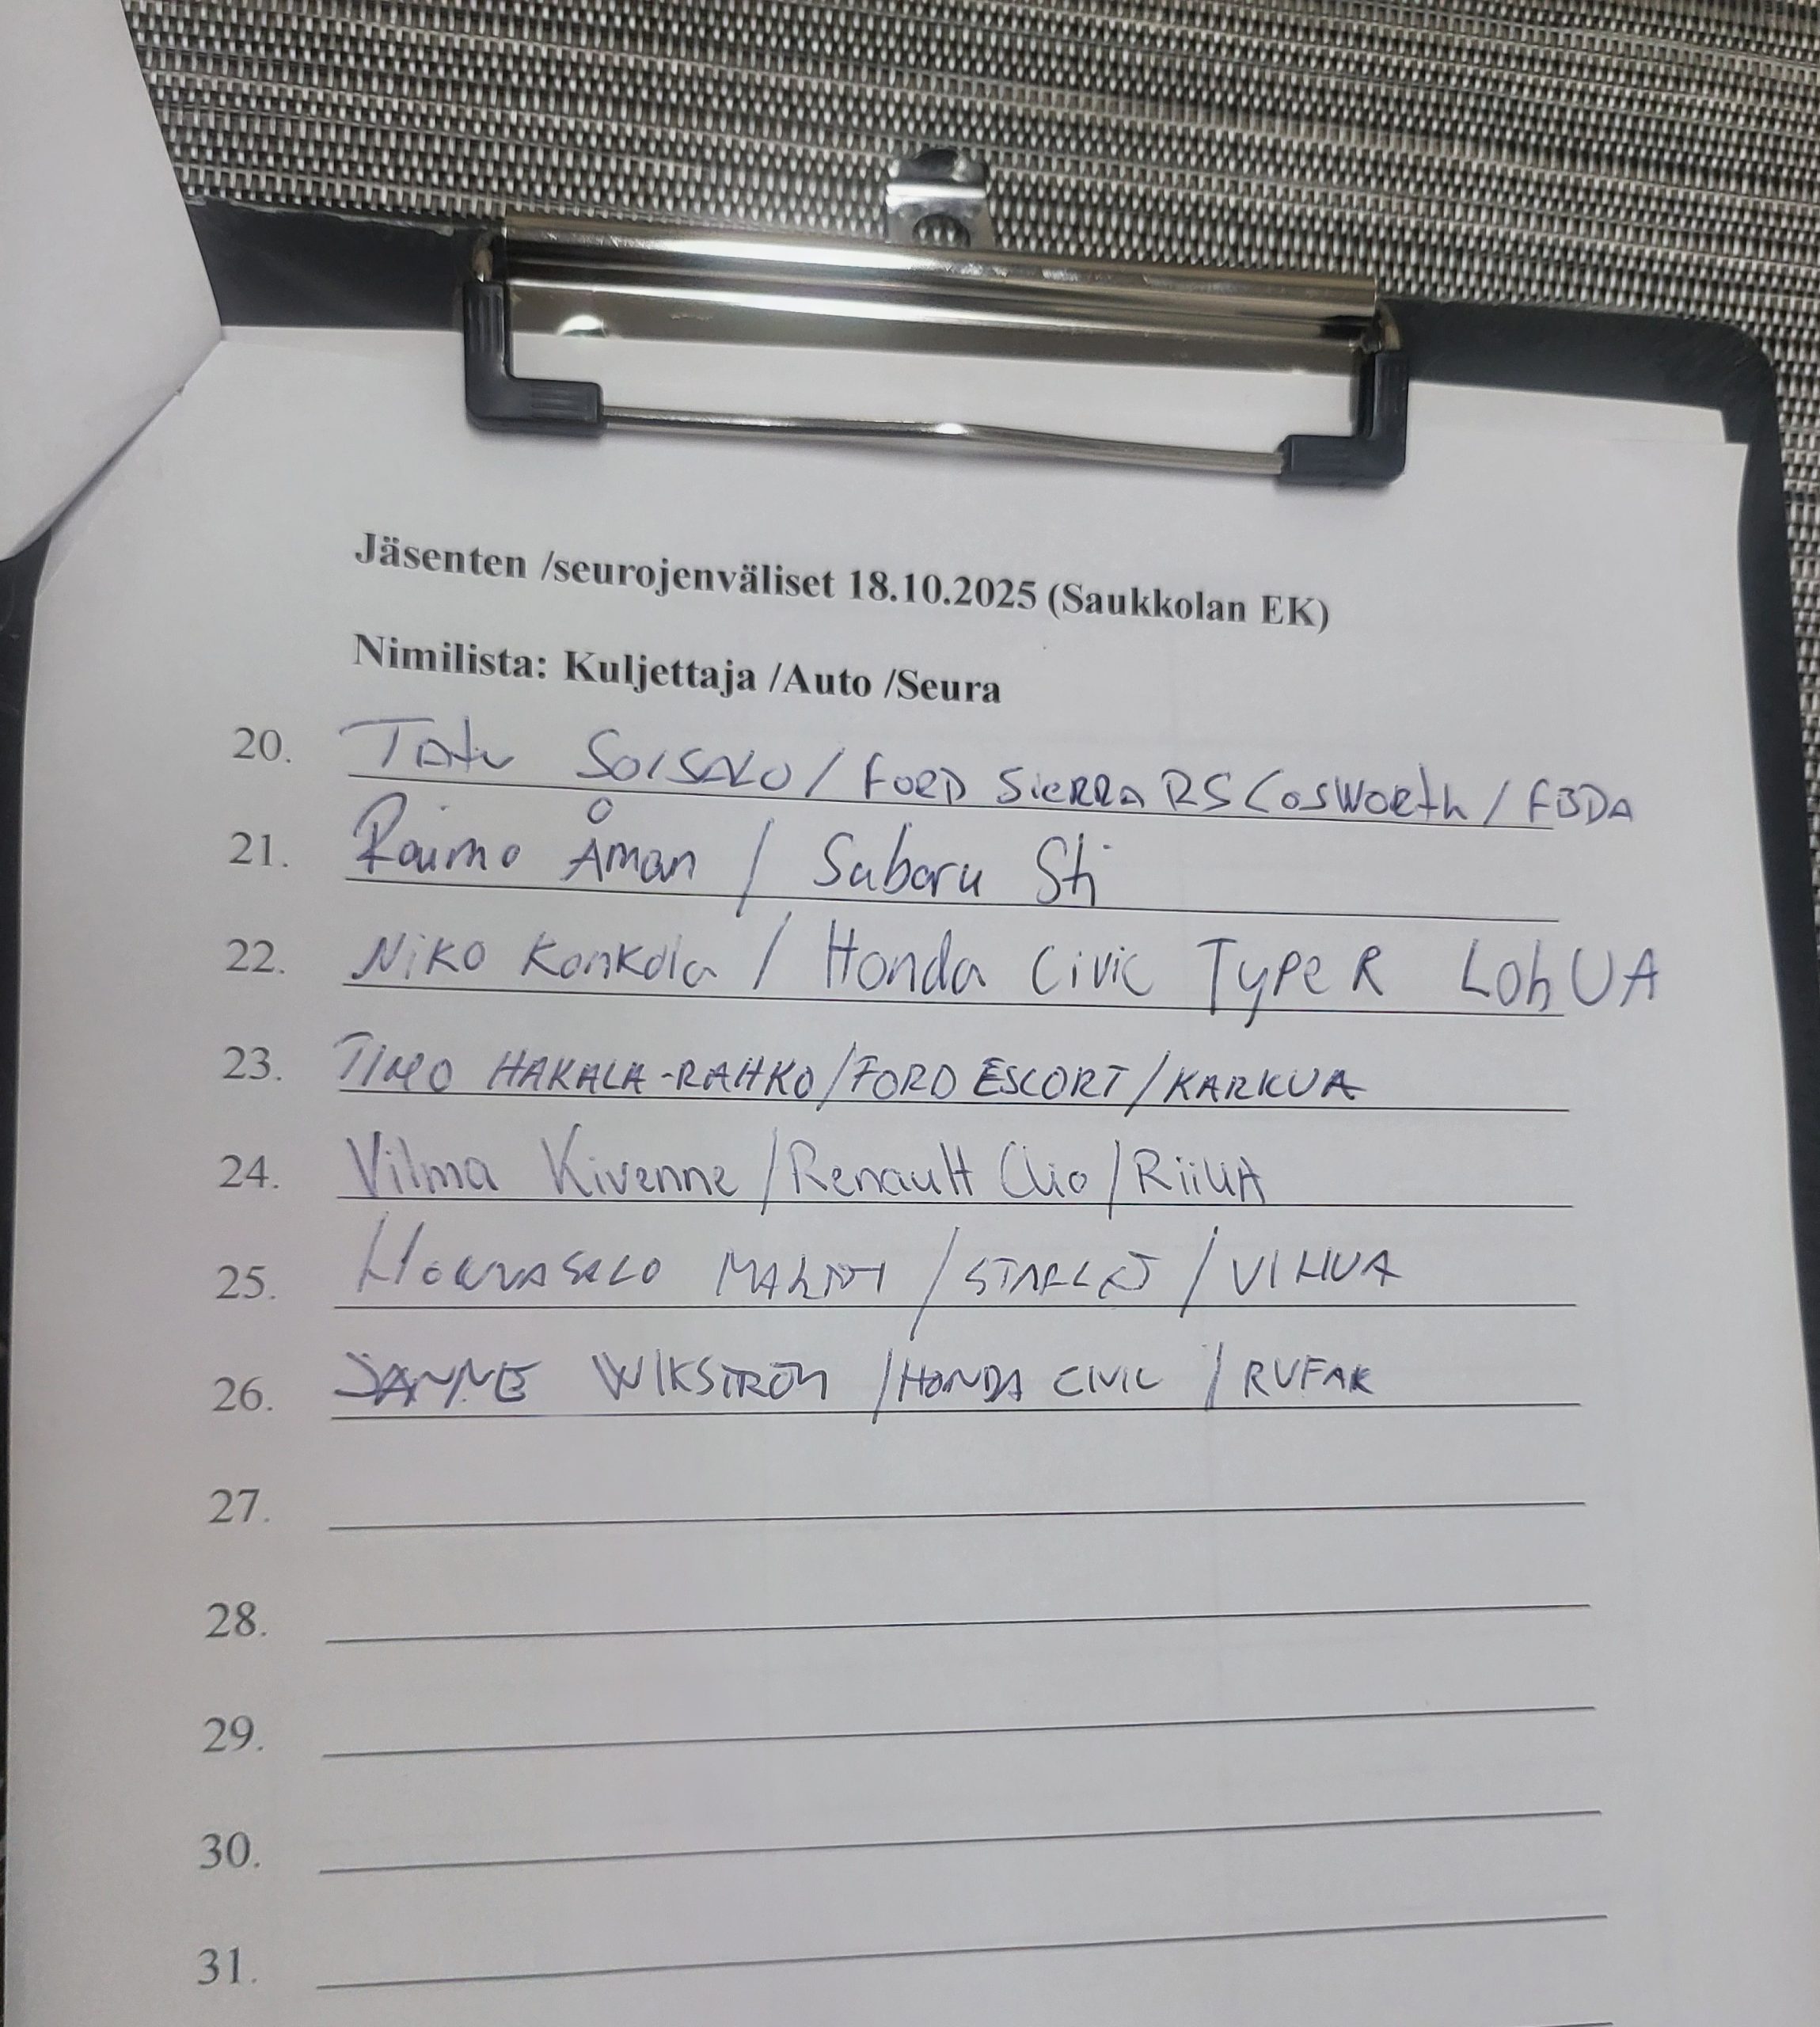 Jäsenten /seurojenväliset 18.10.2025 (Saukkolan EK)
Nimilista: Kuljettaja /Auto /Seura
20. Tatu SOISALO / FORD SIERRA RS COSWORTH / FBDA
21. Raimo Åman / Subaru Sti
22. NiKO KonKola / Honda Civic Type R LohUA
23. TIMO HAKALA-RAHKO/FORD ESCORT/KARKUA
24. Vilma Kivenne /Renault Clio/RiiUA
25. / / VIHUA
26. JANNE WIKSTRÖM /HONDA CIVIC / RUFAK
27.
28.
29.
30.
31.